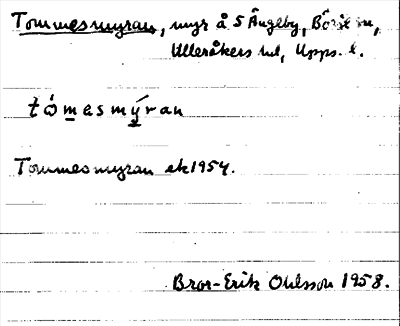 Tommesmyran, myr å S Ängeby, sn,
Ulleråkers hd, Upps. l.
tómesmýran
Tommesmyran ek 1954.
Bror-Erik Ohlsson 1958.